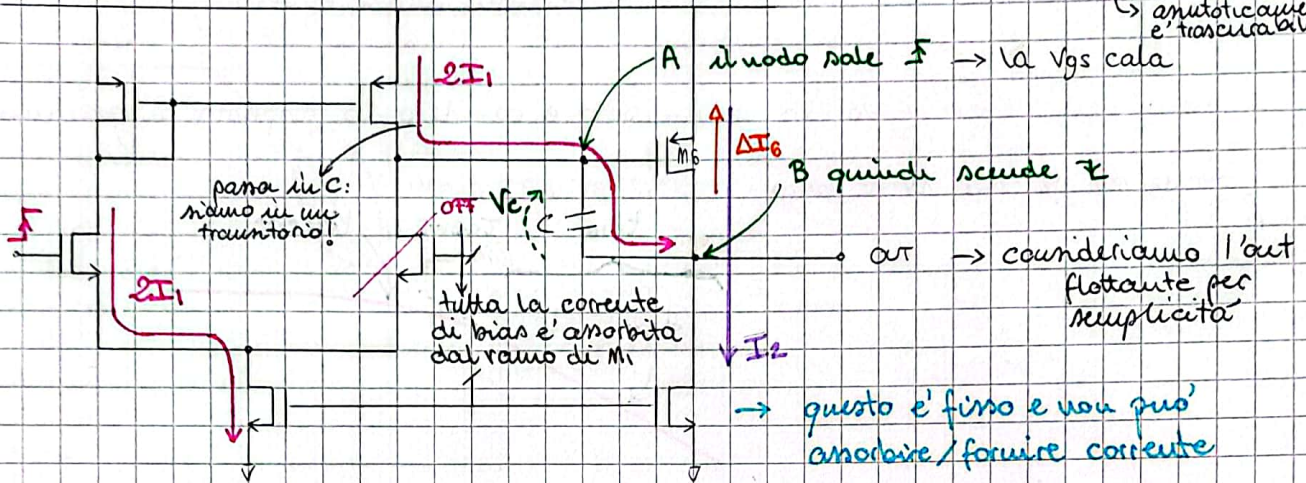 ↳ asintoticamente
è trascurabile
A il nodo sale → la Vgs cala
2I₁
M6
ΔI₆
B quindi scende
passa in C:
siamo in un
transitorio!
OFF
Vc
C
OUT → consideriamo l'out
flottante per
semplicità
2I₁
tutta la corrente
di bias è assorbita
dal ramo di M₁
I₂
→ questo è fisso e non può
assorbire/fornire corrente